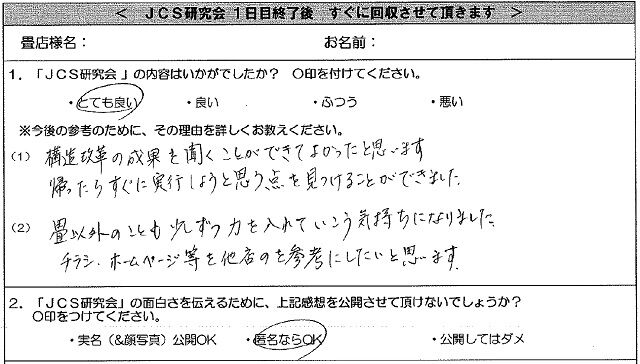 ＜ ＪＣＳ研究会 １日目終了後 すぐに回収させて頂きます ＞
畳店様名： お名前：
１．「ＪＣＳ研究会」の内容はいかがでしたか？ ○印を付けてください。
・とても良い ・良い ・ふつう ・悪い
※今後の参考のために、その理由を詳しくお教えください。
(1) 構造改革の成果を聞くことができてよかったと思います
帰ったらすぐに実行しようと思う点を見つけることができました
(2) 畳以外のことも少しずつ力を入れていこう気持ちになりました
チラシ・ホームページ等を他店のを参考にしたいと思います
２．「ＪＣＳ研究会」の面白さを伝えるために、上記感想を公開させて頂けないでしょうか？
○印をつけてください。
・実名（&顔写真）公開OK ・匿名ならOK ・公開してはダメ